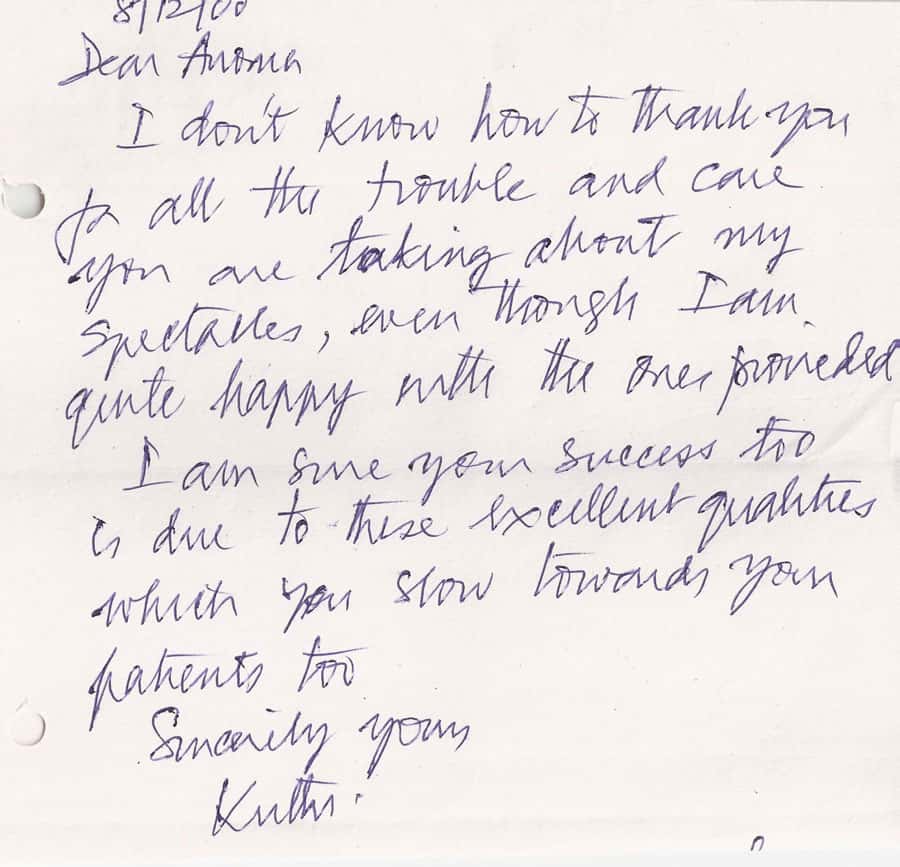 8/12/00
Dear Anoma
I don't know how to thank you
for all the trouble and care
you are taking about my
spectacles, even though I am
quite happy with the ones provided
I am sure your success too
is due to these excellent qualities
which you show towards your
patients too
Sincerely yours